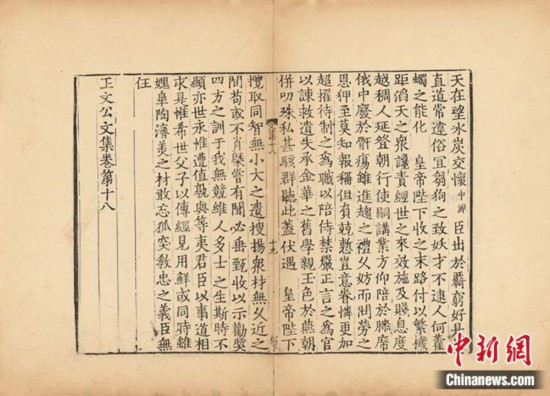 天在望氷炭交懷中謝 臣出於覊窮好是
直道常違俗宜芻狗之致妖才不逮人何蠧
蠋之能化 皇帝陛下收之末路付以繁機
距滔天之衆讒責經世之來效施及賤息度
越稠人延登朝行使嗣講業方仰陪於縢席
俄中廢於骭瘍雖進趨之禮乆妨而問勞之
恩狎至莫知報稱但負兢慙豈意眷憐更加
超擢待制之爲職以陪侍禁嚴正言之爲官
以諫救遺失承金華之舊學親玉色於燕朝
併叨殊私甚駭群聽此蓋伏遇 皇帝陛下
十九
攬取同智無小大之遺搜揚衆材無久近之
間苟或不肖嘗有聞必垂甄收以示勸奬
四方之訓于我無競維人多士之生斯時不
顯亦世永惟遭值曷與等夷君臣以事道相
求臭惟希世父子以傳經見用鮮或同時雖
媿皐陶濟美之材敢忘狐突敎忠之義臣無
任
王文公文集卷第十八
中新網
Chinanews.com